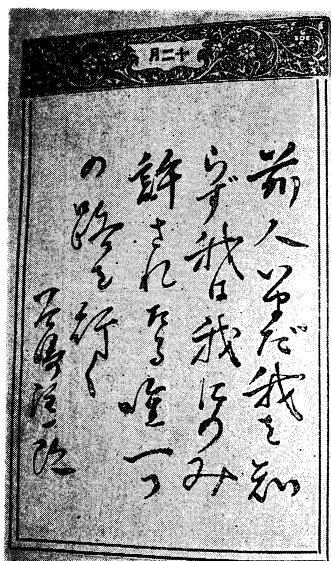 十二月
前人いまだ我を知
らず我は我にのみ
許されたる唯一つ
の路を行く
谷崎潤一郎